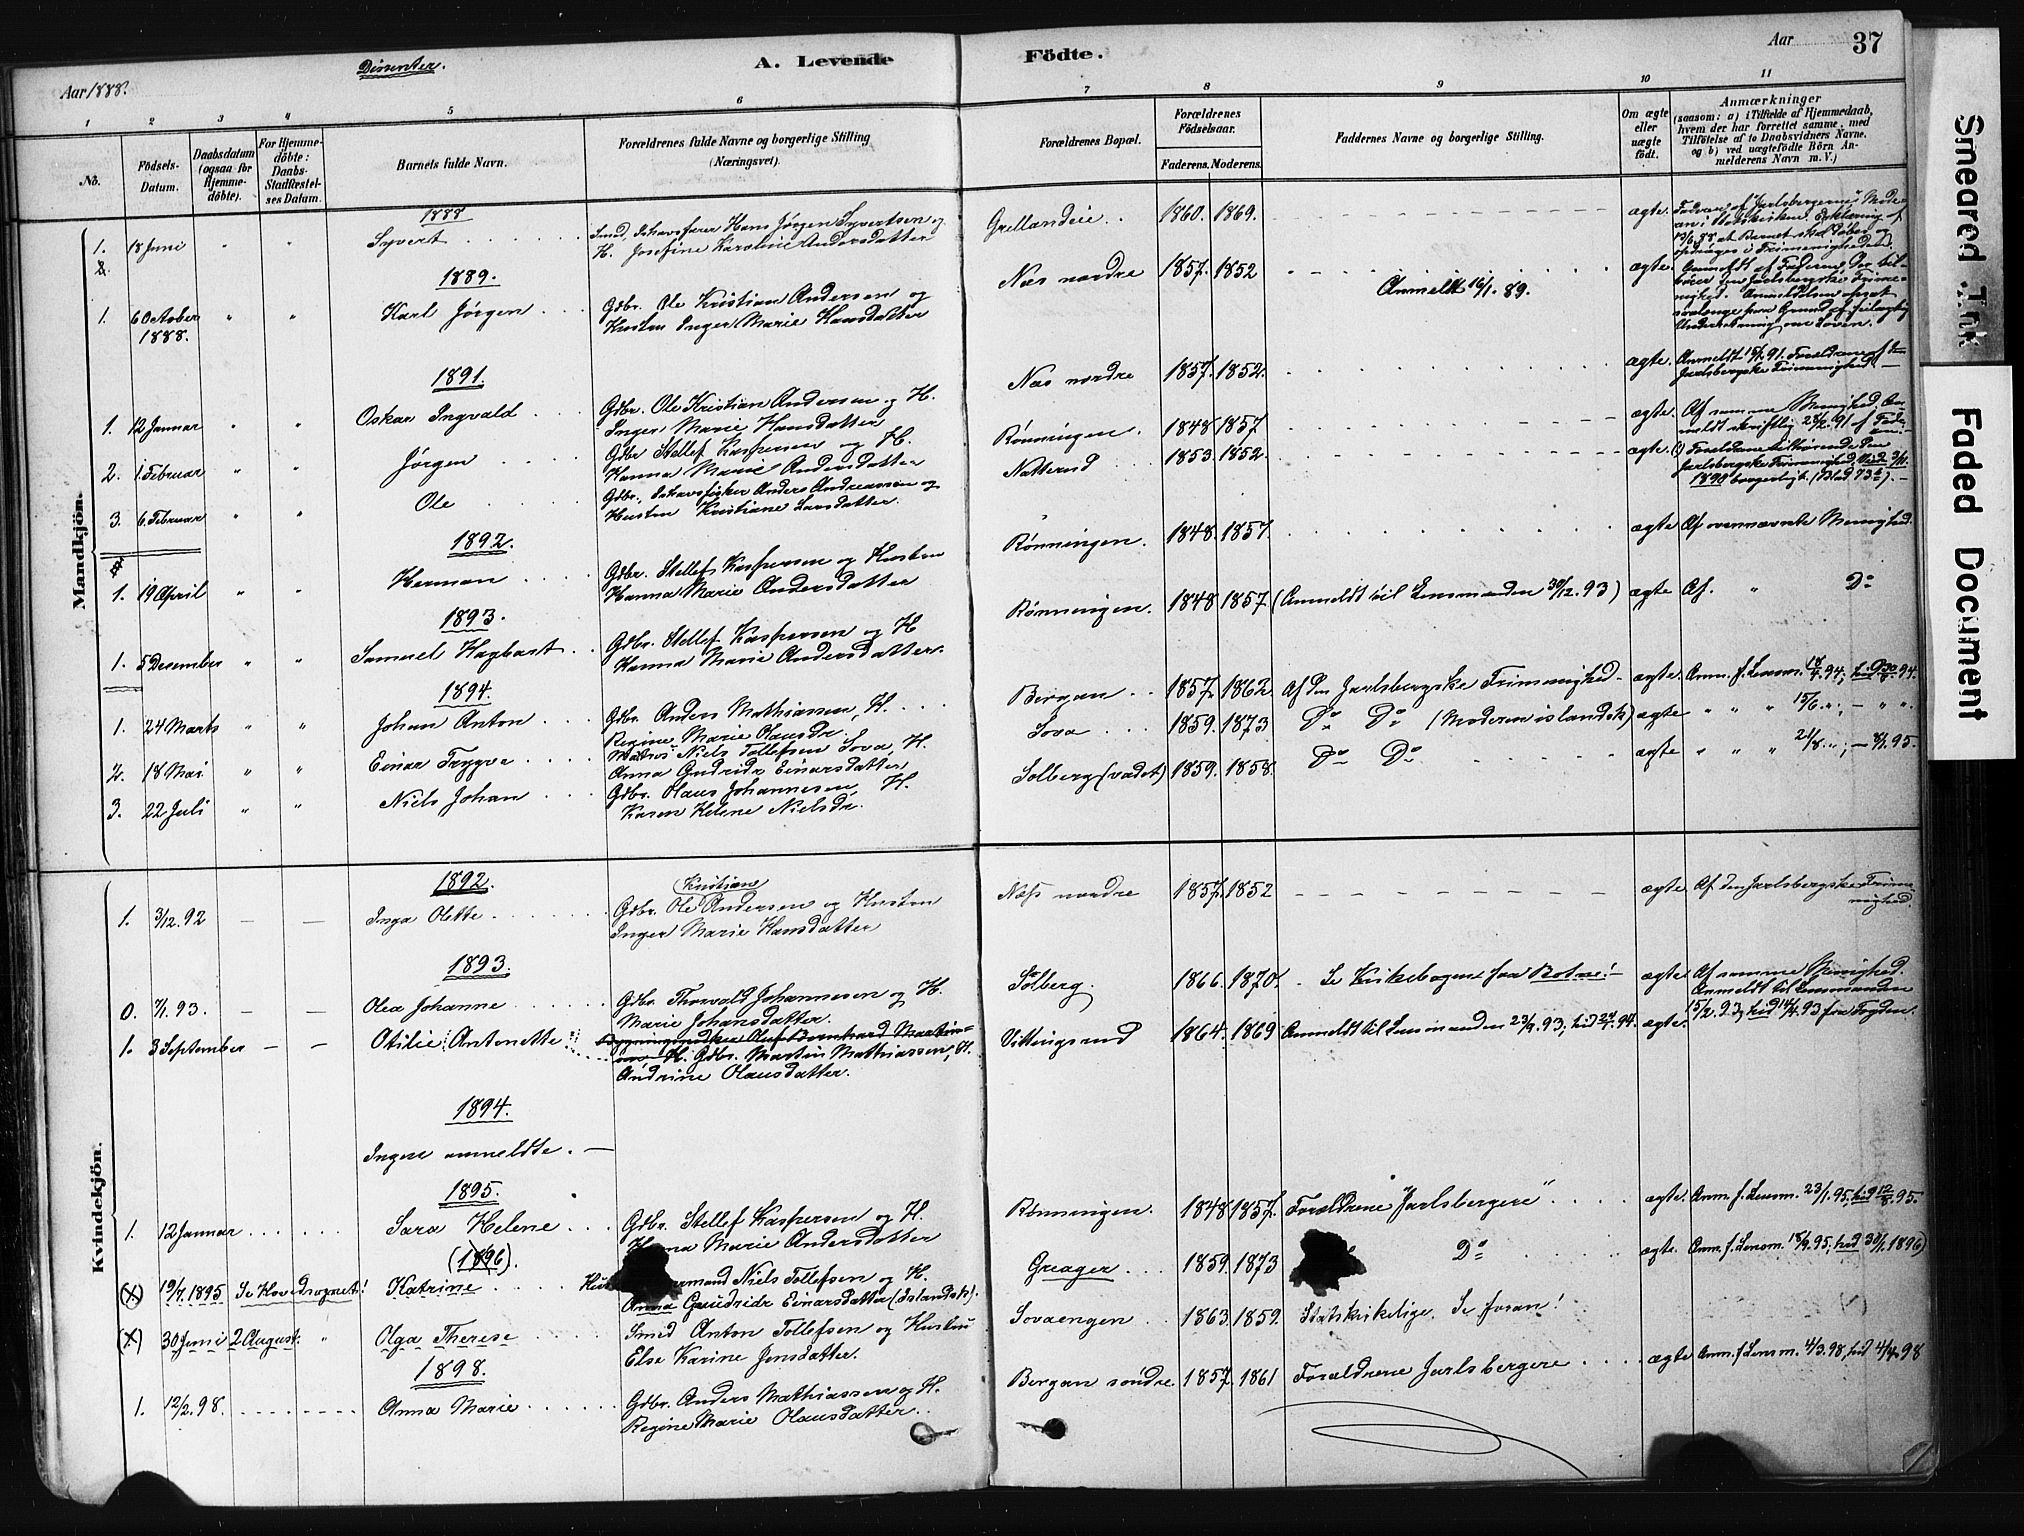 Dissenter.
A. Levende Födte.
Aar 37
Aar 1888.
1 2 3 4 5 6 7 8 9 10 11
No.
Födsels-Datum.
Daabsdatum (ogsaa for Hjemmedöbte).
For Hjemmedöbte: Daabs-Stadfæstelses Datum.
Barnets fulde Navn.
Forældrenes fulde Navne og borgerlige Stilling (Næringsvei).
Forældrenes Bopæl.
Forældrenes Födselsaar.
Faderens. Moderens.
Faddernes Navne og borgerlige Stilling.
Om ægte eller uægte födt.
Anmærkninger
(saasom: a) i Tilfælde af Hjemmedaab,
hvem der har forrettet samme, med
Tilföielse af to Daabsvidners Navne,
og b) ved uægtefödte Börn Anmelderens Navn m. V.)
Mandkjön.
1888
1. 18 Juni " " Syvert
Smed, Ishavsfarer Hans Jørgen Syvertsen og
H. Josefine Karoline Andersdatter
Grellandeie 1860. 1869. ægte.
1889.
1. 6 October 1888. " " Karl Jørgen
Gdbr. Ole Kristian Andersen og
Hustru Inger Marie Hansdatter
Næs nordre 1857. 1852 Anmeldt 16/1.89. ægte.
Anmeldt af Faderen. Der tilhører den Jarlsbergske Frimenighed.
1891.
1. 12 Januar " " Oskar Ingvald
Gdbr. Ole Kristian Andersen og H.
Inger Marie Hansdatter
Næs nordre 1857. 1852. ægte.
Jarlsbergske Frimenighed.
2. 1 Februar " " Jørgen
Gdbr Stellef Kaspersen og H.
Hanna Marie Andersdatter
Rønningen. 1848 1857 ægte. Af samme Menighed.
3. 6. Februar " " Ole
Gdbr., Ishavsfisker Anders Andreassen og
Hustru Kristiane Larsdatter.
Natterud 1853. 1852. ægte.
Jarlsbergske Frimenighed,
1892.
1. 19 April " " Herman
Gdbr. Stellef Kaspersen og Hustru
Hanna Marie Andersdatter
Rønningen. 1848. 1857. ægte Af ovennævnte Menighed.
1893.
1. 5 Desember " " Samuel Hagbart
Gdbr. Stellef Kaspersen og H
Hanna Marie Andersdatter.
Rønningen. 1848 1857 (Anmeldt til Lensmanden 30/12.93) ægte Af. " Do
1894.
1. 24 Marts " " Johan Anton
Gdbr. Anders Mathiassen, H.
Regine Marie Olausdr.
Bergan 1857. 1862. Af den Jarlsbergske Frimenighed. ægte. Anm. f. Lensm. 18/4.94;
2. 18 Mai " " Einar Trygve
Niels Tollefsen Sova, H.
Anna Gudride Einarsdatter
Sova 1859. 1873 Do Do (Moderen islandsk) ægte " " " 15/6 ";
3. 22 Juli " " Niels Johan
Gdbr. Olaus Johannesen, H.
Karen Helene Nielsdr.
Solberg (vadet) 1859. 1858. Do Do ægte " " " 21/8 ";
Kvindekjön.
1892.
1. 3/12.92 — — Inga Olette
Kristian
Gdbr. Ole Andersen og Hustru
Inger Marie Hansdatter
Næss nordre 1857. 1852 ægte. Af den Jarlsbergske Frimenighed.
1893.
0. 7/1.93. — — Olea Johanne
Gdbr. Thorvald Johannesen og H.
Marie Johansdatter.
Solberg. 1866. 1870. Se Kirkebogen for Botne! ægte. Af samme Menighed.
Anmeldt til Lensmanden 15/2.93, hid 14/4.93 fra Fogden.
1. 3 September — — Otilie Antonette
H. Gdbr. Martin Mathiassen, H.
Andrine Olausdatter.
Vittingsrud 1864. 1869 Anmeldt til Lensmanden 23/9.93; hid ægte.
1894.
Ingen anmeldte.
1895.
1. 12 Januar Sara Helene
Gdbr. Stellef Kaspersen og H.
Marie Andersdatter
Rønningen. 1848 1857. Forældrene "Jarlsbergere" ægte. Anm. f. Lensm. 23/1.95,
(1896).
19/7.1895 Se Hovedsognet! Katrine
Niels Tollefsen og H.
Anna Gudride Einarsdatter (Islandsk).
Greager 1859. 1873 Do ægte. Anm. f. Lensm.
30 Juni 2 August. " Olga Therese
Smed Anton Tollefsen og Hustru
Else Karine Jensdatter.
Sovaengen 1863. 1859. Statskirkelige. Se foran!
1898.
1. 12/2.98. Anna Marie
Gdbr. Anders Mathiassen og H.
Regine Marie Olausdatter.
Bergan søndre. 1857. 1861 Forældrene Jarlsbergere ægte Anm. f. Lensm. 4/3.98, hid 4/4.98
Smeared Ink
Faded Document